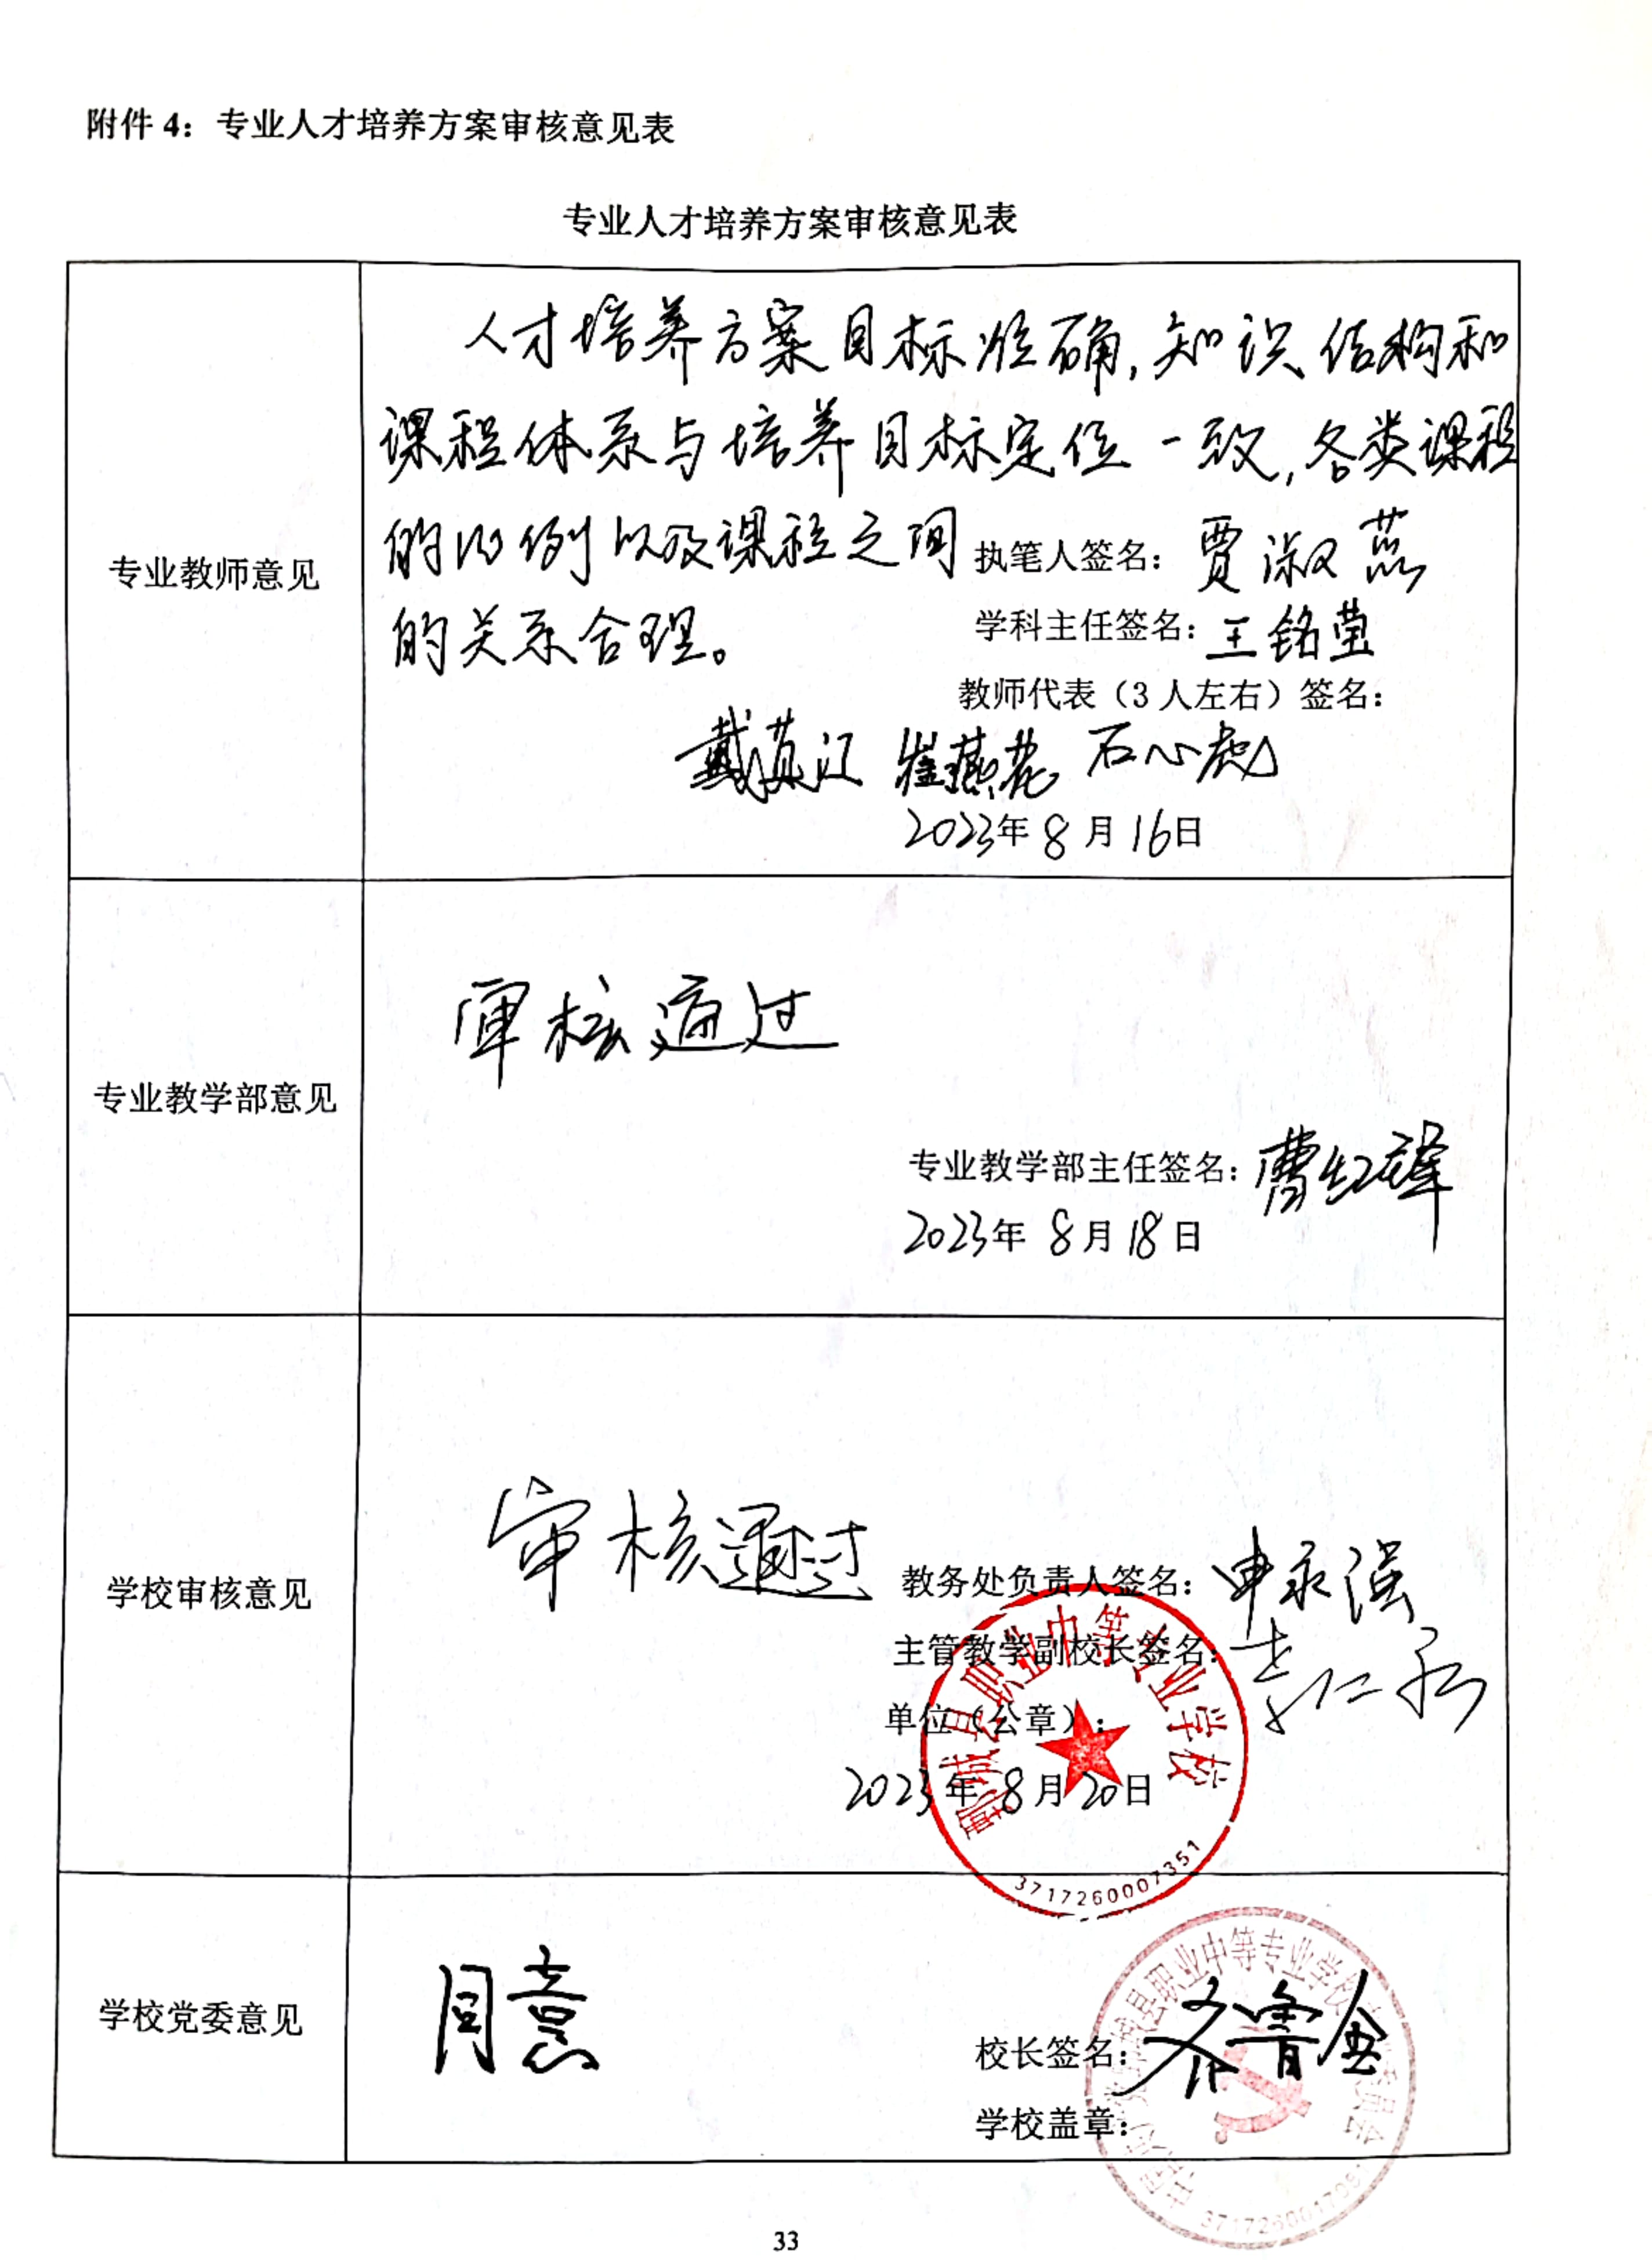 附件 4：专业人才培养方案审核意见表
专业人才培养方案审核意见表
专业教师意见
人才培养方案目标准确,知识结构和
课程体系与培养目标定位一致,各类课程
的比例以及课程之间
的关系合理。
执笔人签名：贾淑燕
学科主任签名：王铭莹
教师代表（3 人左右）签名：
戴英江 崔燕花 石心彪
2023年 8 月 16日
专业教学部意见
审核通过
专业教学部主任签名：曹红锋
2023年 8月 18日
学校审核意见
审核通过
教务处负责人签名：申永强
主管教学副校长签名：
单位（公章）：
2023年 8月 20日
鄄城县职业中等专业学校
3717260007351
学校党委意见
同意
校长签名：齐鲁金
学校盖章：
县职业中等专业学校
33